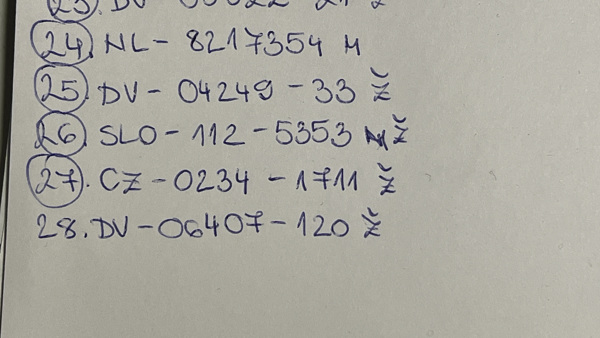 24. NL - 8217354 M
25. DV - 04249 - 33 Ž
26. SLO - 112 - 5353 Ž
27. CZ - 0234 - 1711 Ž
28. DV - 06407 - 120 Ž